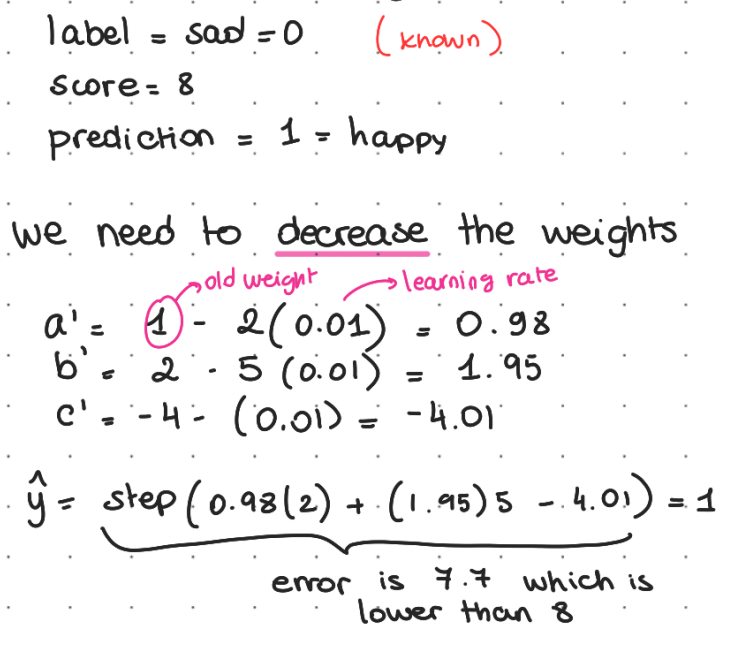 label = sad = 0 (known)
score = 8
prediction = 1 = happy
we need to decrease the weights
old weight learning rate
a' = 1 - 2(0.01) = 0.98
b' = 2 - 5 (0.01) = 1.95
c' = -4 - (0.01) = -4.01
ŷ = step(0.98(2) + (1.95)5 - 4.01) = 1
error is 7.7 which is
lower than 8